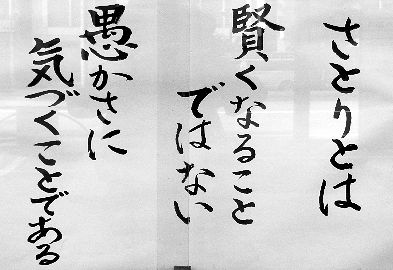 さとりとは
賢くなること
ではない
愚かさに
気づくことである